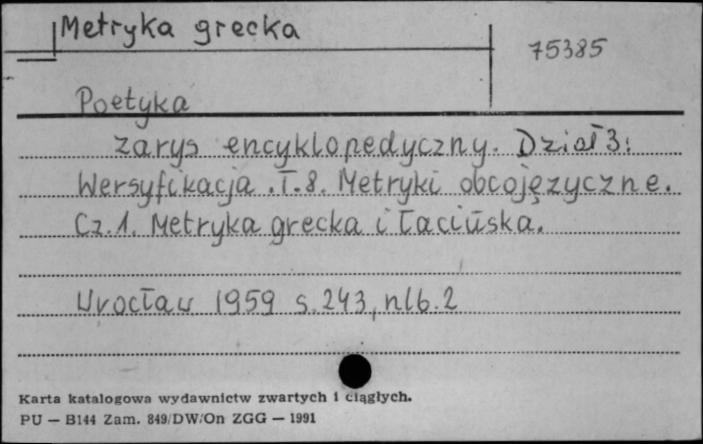 Metryka grecka
75385
Poetyka
zarys encyklopedyczny. Dział 3:
Wersyfikacja. T.8. Metryki obcojęzyczne.
Cz.1. Metryka grecka i łacińska.
Wrocław 1959 s.243, nlb.2
Karta katalogowa wydawnictw zwartych i ciągłych.
PU — B144 Zam. 849/DW/On ZGG — 1991